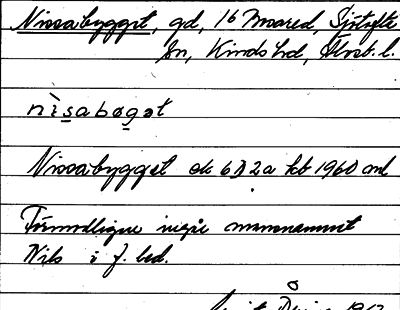 Nissabygget, gd, 16 Moared, Sjötofta
sn, Kinds hd, Älvsb. l.
nìsabøgət
Nissabygget ek 6D2a kb 1960 and
Förmodligen ingår mansnamnet
Nils i f. led.